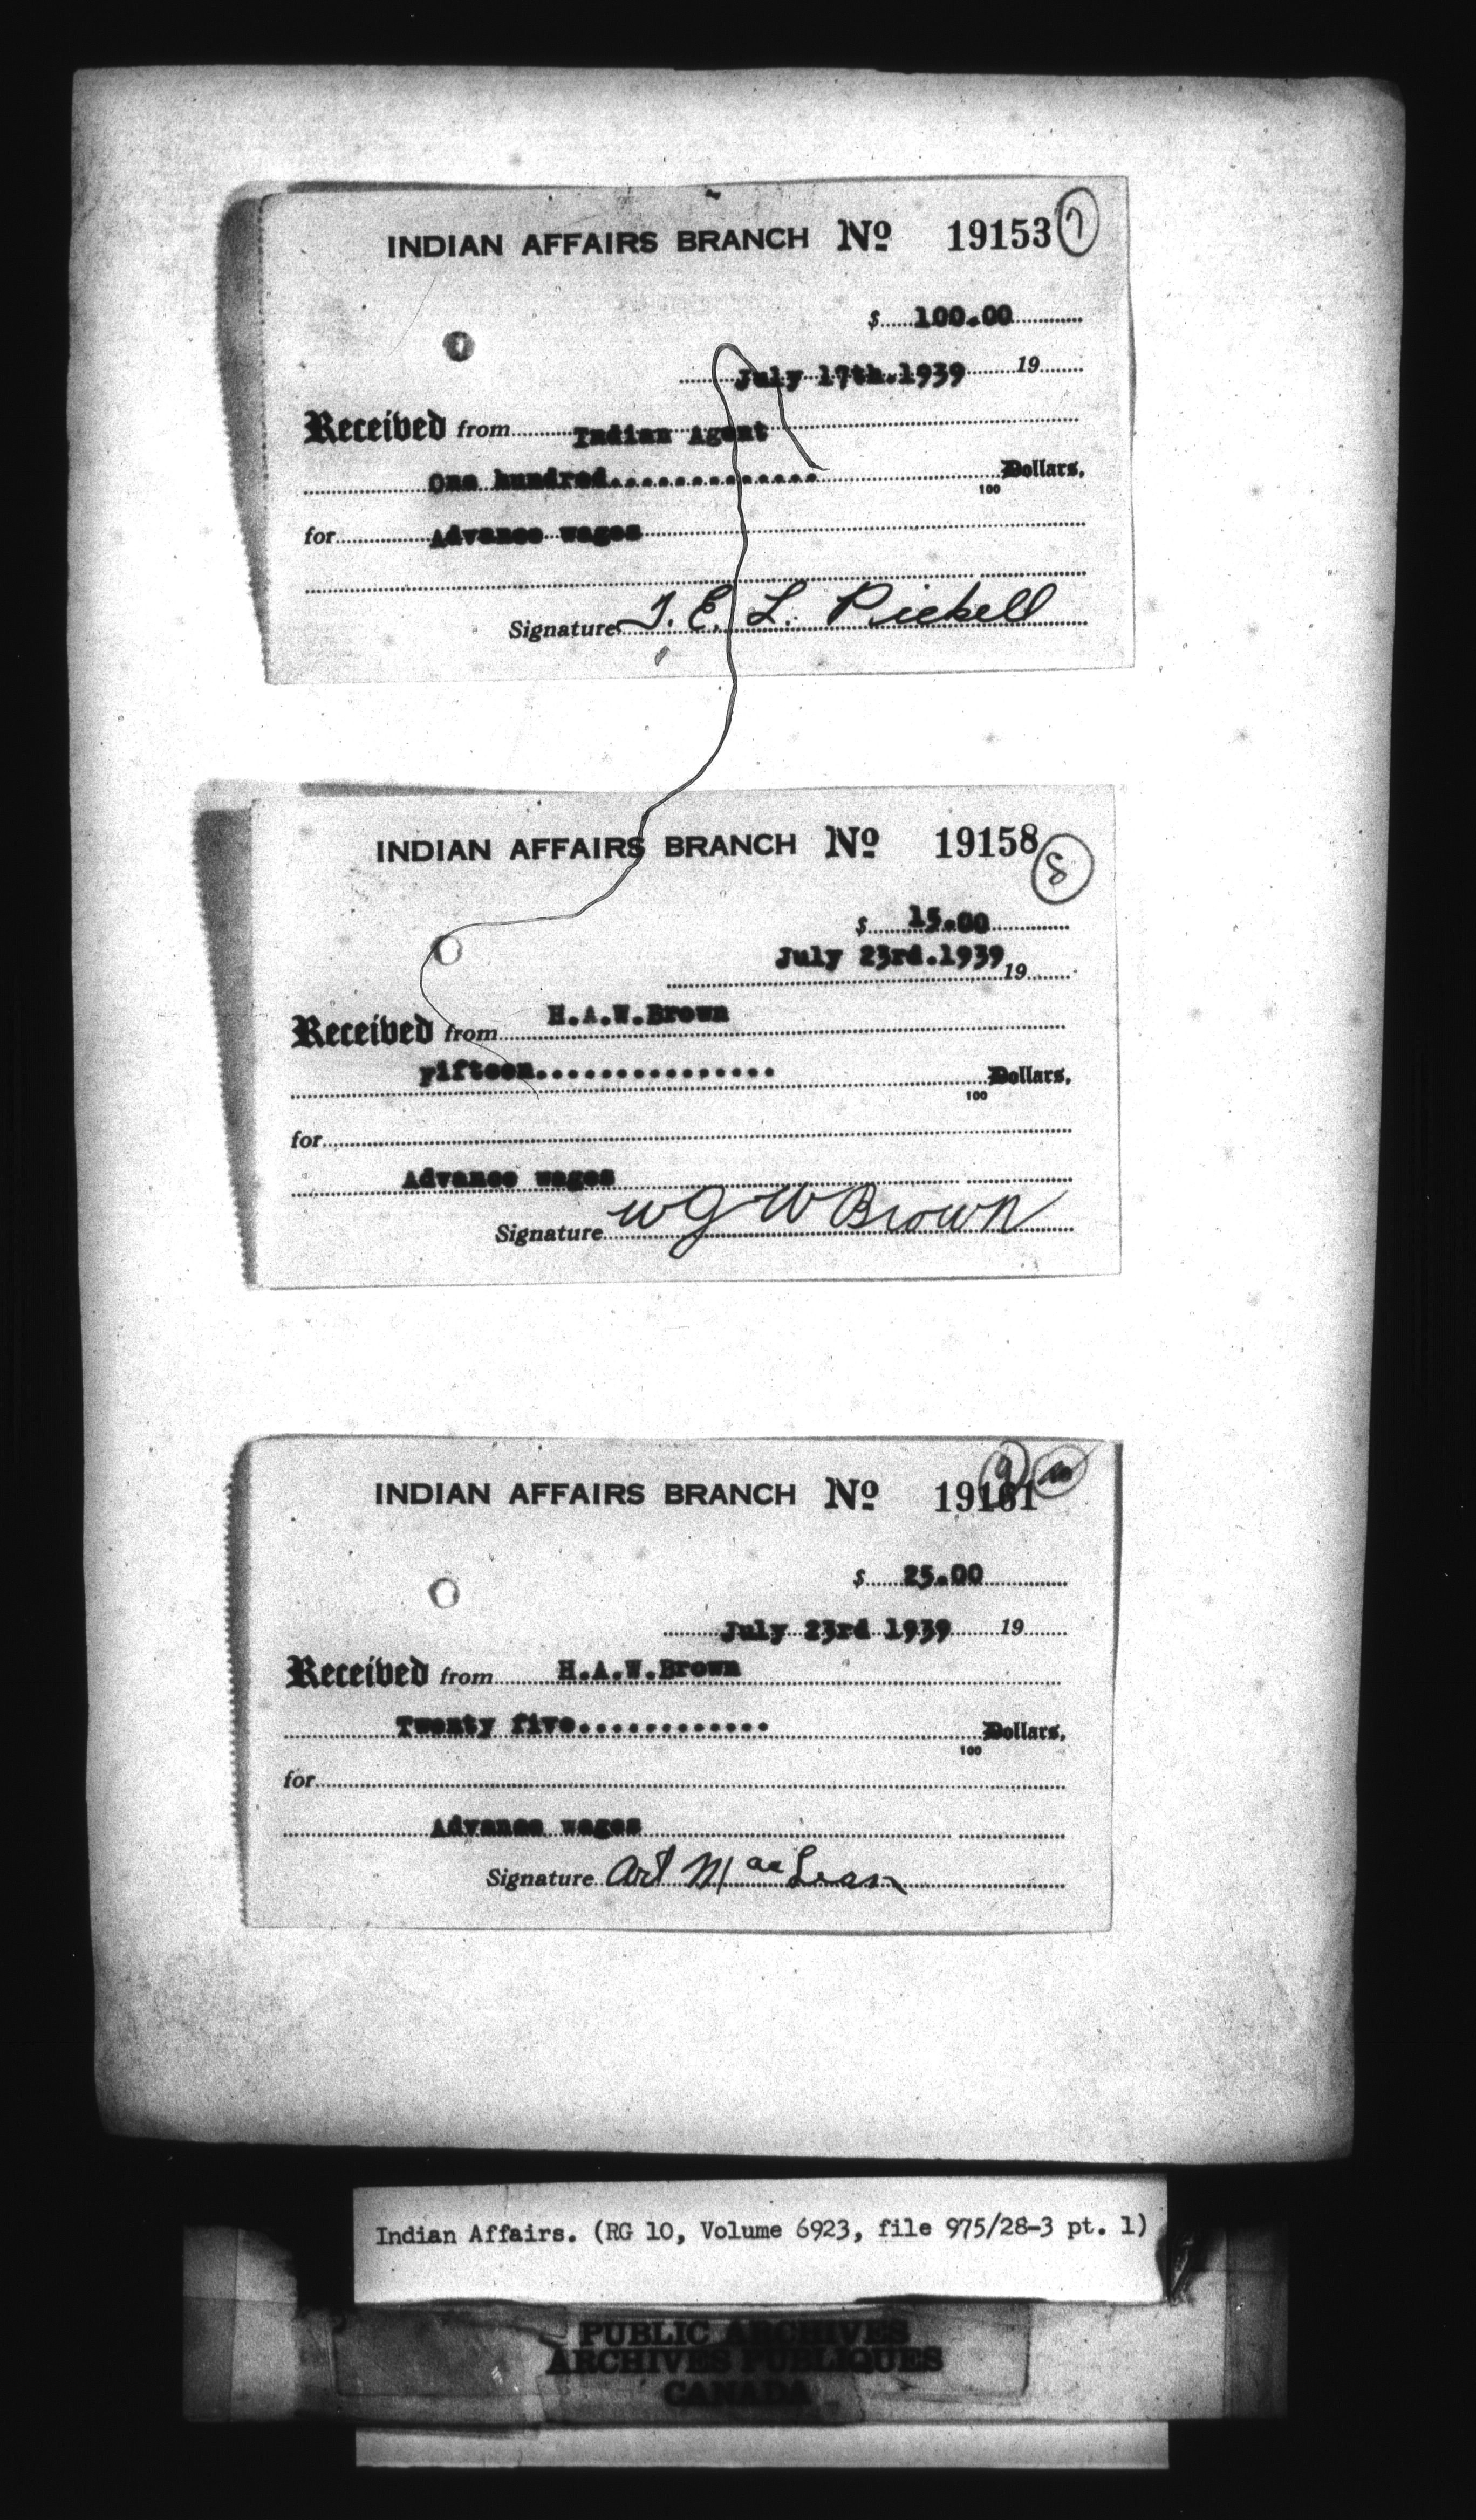 INDIAN AFFAIRS BRANCH Nº 19153 7
$ 100.00
July 17th.1939 19
Received from Indian Agent
One hundred.............. 100 Dollars,
for Advance wages
Signature T. E. L. Pickell
INDIAN AFFAIRS BRANCH Nº 19158 8
$ 15.00
July 23rd.1939 19
Received from H.A.W.Brown
Fifteen............... 100 Dollars,
for
Advance wages
Signature W G W Brown
INDIAN AFFAIRS BRANCH Nº 19161 9
$ 25.00
July 23rd 1939 19
Received from H.A.W.Brown
Twenty five............ 100 Dollars,
for
Advance wages
Signature Art MacLean
Indian Affairs. (RG 10, Volume 6923, file 975/28-3 pt. 1)
PUBLIC ARCHIVES
ARCHIVES PUBLIQUES
CANADA